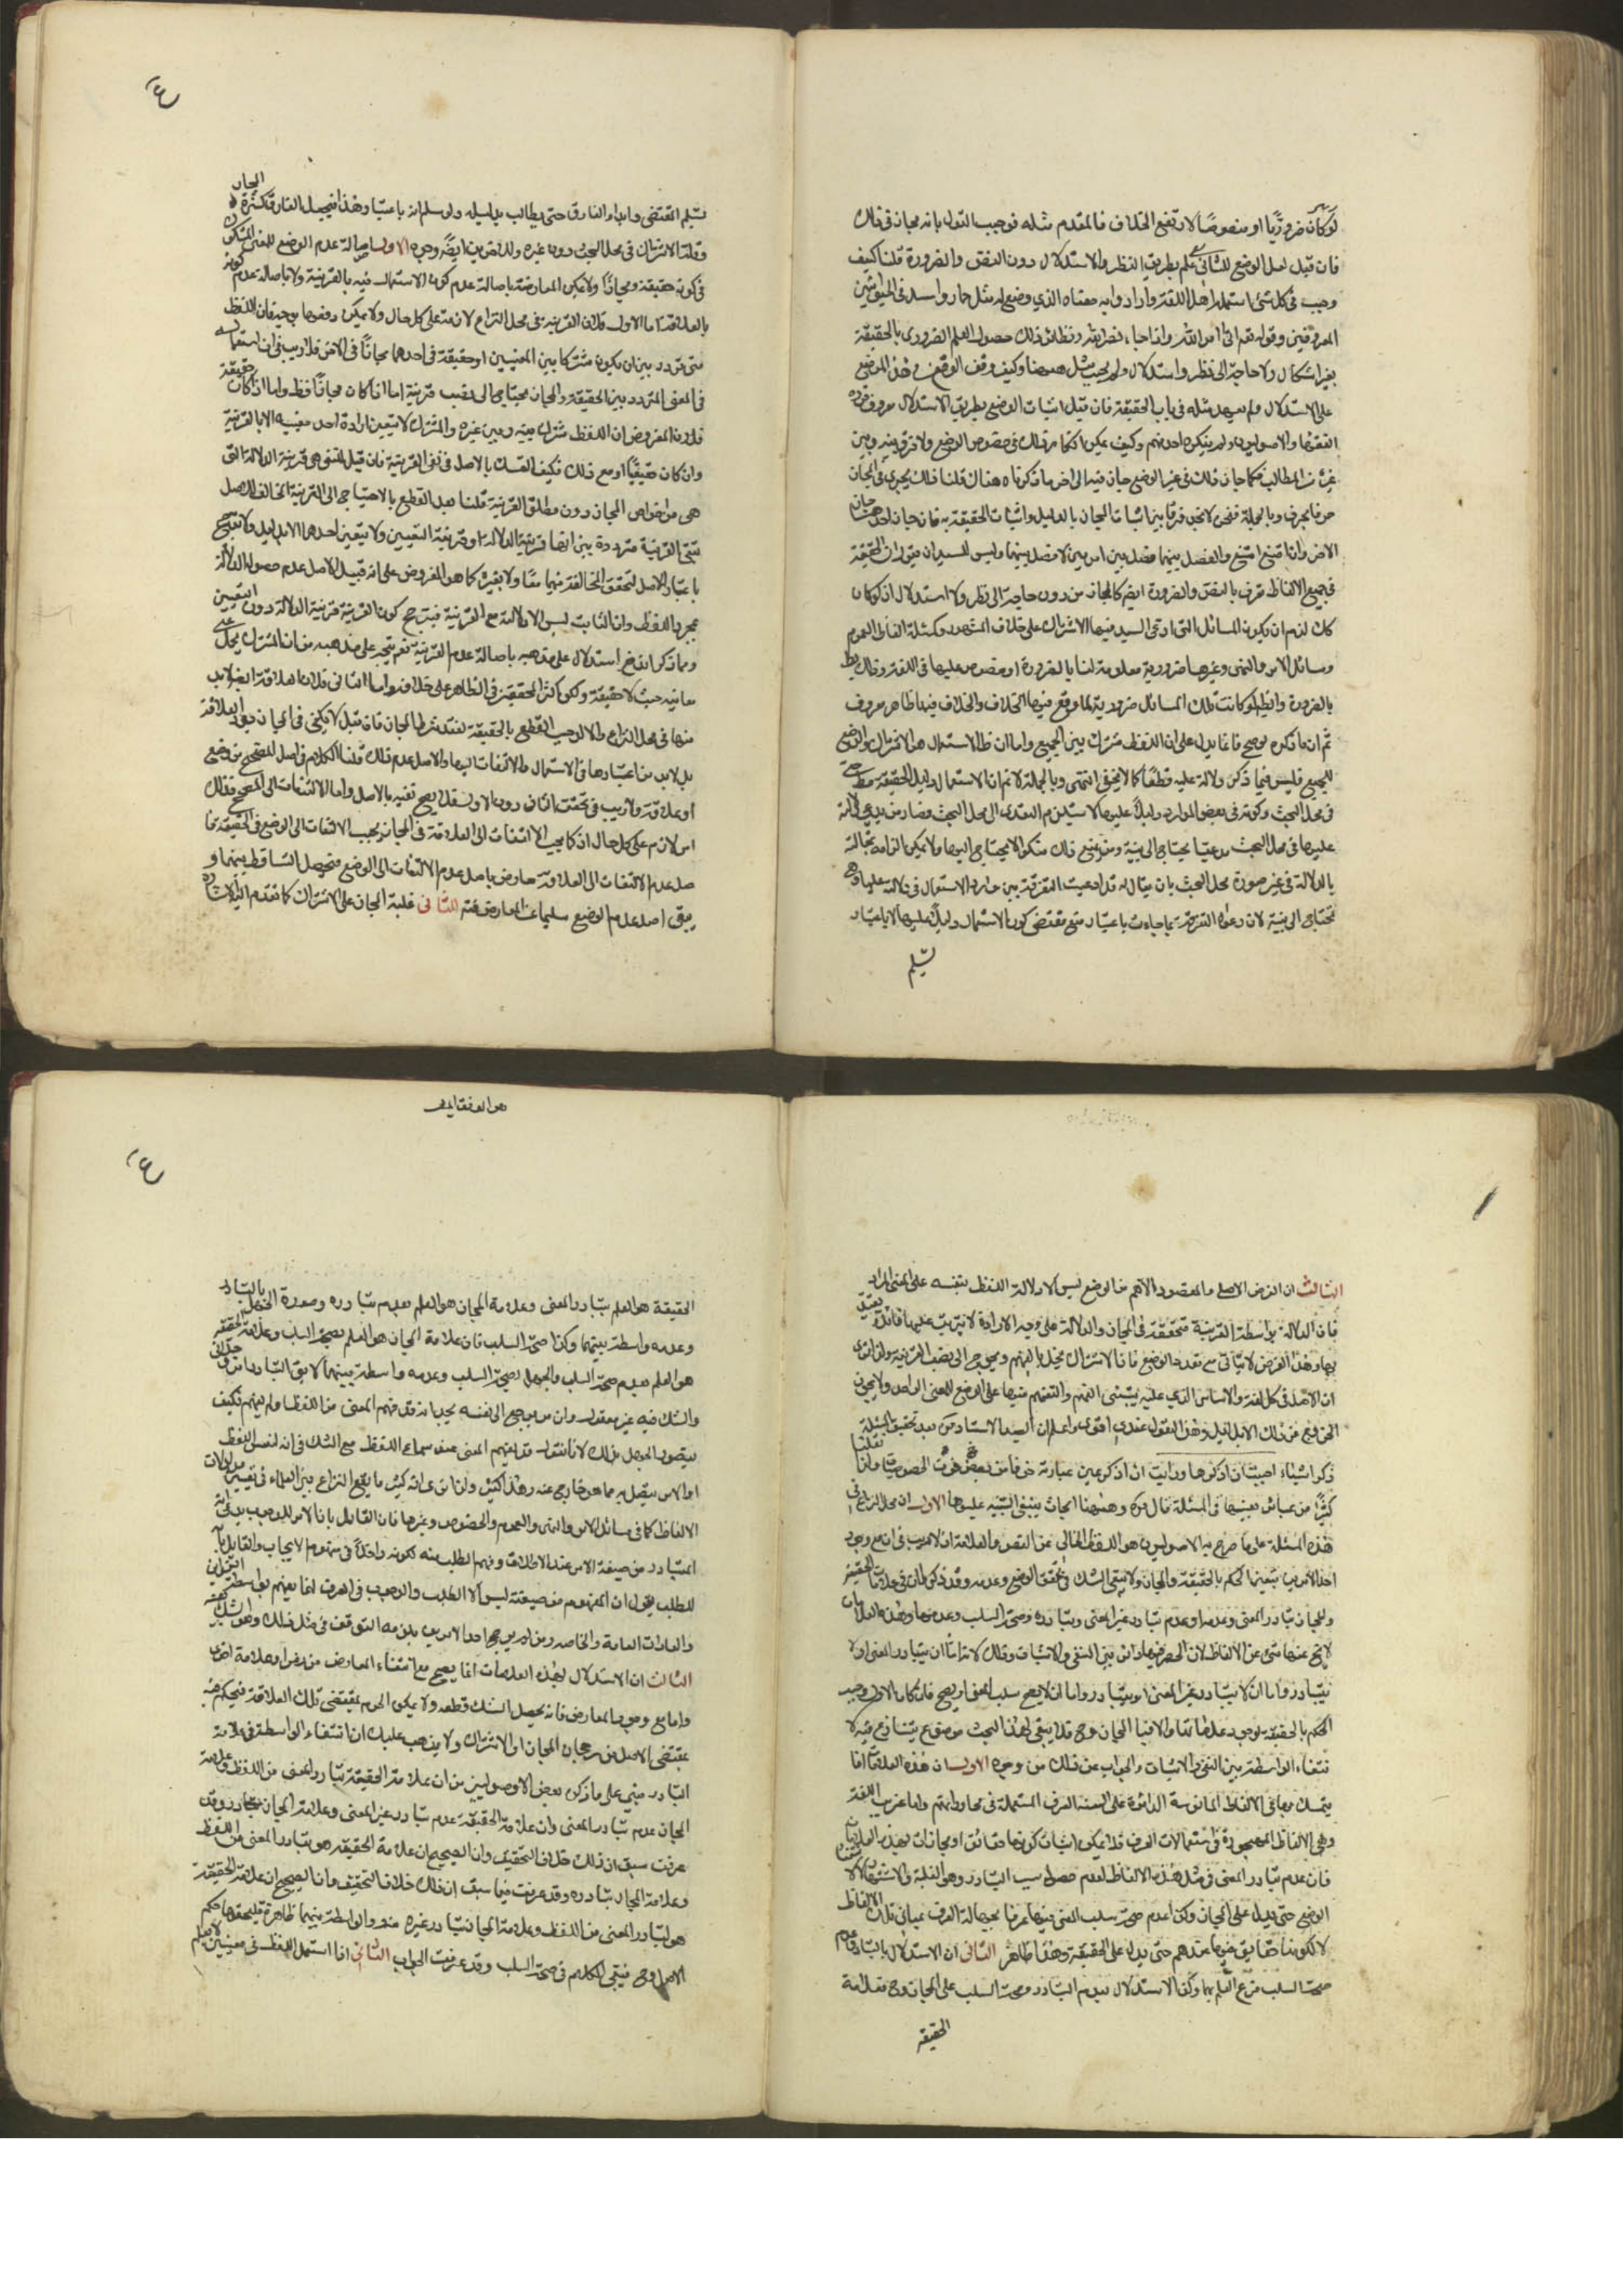 لو كان ضروريًا او منصوصًا لارتفع الخلاف فالمقدم مثله فوجب القول بانه مجاز في ذلك
فان قيل لعل الوضع للثاني علم بطريق النظر والاستدلال دون النص والضرورة قلنا كيف
وجب في كل شئ استعمله اهل اللغة وارادوا به معناه الذي وضع له مثل حمار واسد في الحيوانين
المعروفين وقوله تعالى اتى امر الله واذا جاء نصر الله ونظائر ذلك حصول العلم الضروري بالحقيقة
بغير اشكال ولا حاجة الى نظر واستدلال ولم يجب مثل ههنا وكيف وقف الوقف في هذا الموضع
على الاستدلال ولم يعهد مثله في باب الحقيقة فان قيل اثبات الوضع بطريق الاستدلال معروف
الفقهاء والاصوليين ولم ينكره احد منهم وكيف يمكن انكار ذلك في خصوص الوضع ولا فرق بينه وبين
غيره من المطالب فكما جاز ذلك في غير الوضع جاز فيه الى اخر ما ذكرناه هناك قلنا ذلك يجري في المجاز
حرفا بحرف وبالجملة فنحن لا نجد فرقا بين اثبات المجاز بالدليل واثبات الحقيقة به فان جاز احدهما جاز
الاخر وان امتنع امتنع والفصل بينهما فصل بين امرين لا فصل بينهما وليس للسيد ان يقول ان الحقيقة
في جميع الالفاظ تعرف بالنص والضرورة ايضا كالمجاز من دون حاجة الى نظر ولا استدلال اذ لو كان
كذلك لزم ان يكون المسائل التي ادعى السيد فيها الاشتراك على خلاف المشهور كمسئلة الفاظ العموم
ومسائل الامر والنهي وغيرها ضرورية معلومة لنا بالضرورة او منصوص عليها في اللغة وذلك بط
بالضرورة وايضا لو كانت تلك المسائل ضرورية لما وقع فيها الخلاف والخلاف فيها ظاهر معروف
ثم ان ما ذكره لو صح فانما يدل على ان اللفظ مشترك بين الجميع واما ان الاستعمال هو الاشتراك والوضع
للجميع فليس فيما ذكر دلالة عليه قطعًا كما لا يخفى انتهى وبالجملة لا نم ان الاستعمال دليل الحقيقة مط حتى
في محل البحث وكونه في بعض الموارد دليلاً عليها لا يستلزم التعدي الى محل البحث فصار من يدعي دلالته
عليها في محل البحث مدعيا يحتاج الى بينة ومن يمنع ذلك منكرا لا يحتاج اليها ولا يمكن الزامه بمقالته
بالدلالة في غير صورة محل البحث بان يقال له قد ادعيت التفرقة بين موارد الاستعمال في دلالته عليها وهي
تحتاج الى بينة لان دعواه التفرقة ما جاءت باعتبار منع مقتضى كون الاستعمال دليلاً عليها الا باعتبار
تسليم
تسليم المقتضى وابداء الفارق حتى يطالب بدليله ولو سلم انه باعتبار هذا فيجعل الفارق كثرة المجاز
وقلة الاشتراك في محل البحث دون غيره وللاخرين ايضًا وجوه الاول اصالة عدم الوضع للمعنى المشكوك
في كونه حقيقة ومجازًا ولا يمكن المعارضة باصالة عدم كون الاستعمال فيه بالقرينة ولا باصالة عدم كونه
بالعلاقة اما الاول فلان القرينة في محل النزاع لازمة على كل حال ولا يمكن دفعها بوجه فان اللفظ
متى تردد بين ان يكون مشتركا بين المعنيين او حقيقة في احدهما مجازًا في الاخر فلا ريب في ان استعماله
في المعنى المتردد بين الحقيقة والمجاز محتاج الى نصب قرينة اما اذا كان مجازًا فظ واما اذا كان حقيقة
فلان المفروض ان اللفظ مشترك بينه وبين غيره والمشترك لا يتعين ارادة احد معنييه الا بالقرينة
وان كان حقيقيًا ومع ذلك فكيف التمسك بالاصل في نفي القرينة فان قيل المنفي هو قرينة الدلالة التي
هي من خواص المجاز دون مطلق القرينة قلنا بعد القطع بالاحتياج الى القرينة المخالف للاصل
تبقى القرينة مترددة بين انها قرينة الدلالة او قرينة التعيين ولا يتعين احدهما الا بدليل ولا ترجيح
باعتبار الاصل لتحقق المخالفة فيهما معًا ولا بغيره كما هو المفروض على انه قبيل الاصل عدم حصول الدلالة
بمجرد اللفظ وان الثابت ليس الا الدلالة مع القرينة فيترجح كون القرينة قرينة الدلالة دون التعيين
ومما ذكر اتضح استدلال على مذهبه باصالة عدم القرينة نعم يتجه على مذهبه من ان المشترك يحمل على
معانيه حيث لا حقيقة ولكن اكثر المحققين في الظاهر على خلافه واما الثاني فلان العلاقة ايضا لا بد
منها في محل النزاع والا لوجب القطع بالحقيقة لفقد شرط المجاز فان قيل لا يكفي في المجاز وجود العلاقة
بل لا بد من اعتبارها في الاستعمال والالتفات اليها والاصل عدم ذلك قلنا الكلام في اصل المصحح من وضع
او علاقة ولا ريب في تحقق الثاني دون الاول فلا يصح نفيه بالاصل واما الالتفات الى المصحح فذلك
امر لازم على كل حال اذ كما يجب الالتفات الى العلاقة في المجاز يجب الالتفات الى الوضع في الحقيقة فا
صل عدم الالتفات الى العلاقة معارض باصل عدم الالتفات الى الوضع فيحصل التساقط بينهما و
يبقى اصل عدم الوضع سليما عن المعارض فتم الثاني غلبة المجاز على الاشتراك كما تقدم اليه الاشارة
هو الموفق
الثالث ان الغرض الاصلي والمقصود الاهم من الوضع ليس الا دلالة اللفظ بنفسه على المعنى المراد
فان الدلالة بواسطة القرينة متحققة في المجاز والدلالة على وجه الارادة لا يترتب عليها فائدة يعتد
بها وهذا الغرض لا يتأتى مع تعدد الوضع فان الاشتراك مخل بالفهم ومحوج الى نصب القرينة ولذا ترى
ان الاصل في كل لغة والاساس الذي عليه يبتنى الفهم والتفهيم فيها على الوضع للمعنى الواحد ولا يجوز
الخروج عن ذلك الا بدليل وهذا القول عندي اقوى واعلم ان السيد الاستاد ذكر بعد تحقيق المسئلة
ذكر اشياء احببت ان اذكرها ورايت ان اذكر عين عبارته
كثيرًا من عبائره بعينها في المسئلة قال قده وههنا ابحاث ينبغي التنبيه عليها الاول ان محل النزاع في
هذه المسئلة على ما صرح به الاصوليون هو اللفظ الخالي عن النص والعلامة اذ لا ريب في ان مع وجود
احد الامرين يتعين الحكم بالحقيقة والمجاز ولا يبقى الشك في تحقق الوضع وعدمه وقد ذكروا ان علامات الحقيقة
والمجاز تبادر المعنى وعدمه او عدم تبادر غير المعنى وتبادره وصحة السلب وعدمها وهذه العلامات
لا يخ عنها شئ من الالفاظ لان الحصر فيها دائر بين النفي والاثبات وذلك لانه اما ان يتبادر المعنى او لا
يتبادر واما ان لا يتبادر غير المعنى او يتبادر واما ان لا يصح سلب المعنى او يصح فان كان الاول وجب
الحكم بالحقيقة لوجود علاماتها والا فبالمجاز وح فلا يبقى لهذا البحث موضوع يتنازع فيه لا
نتفاء الواسطة بين النفي والاثبات والجواب عن ذلك من وجوه الاول ان هذه العلامات انما
يتمسك بها في الالفاظ المانوسة الدائرة على السنة اهل العرف المستعملة في محاوراتهم واما غريب اللغة
وهي الالفاظ المهجورة في استعمالات العرف فلا يمكن اثبات كونها حقائق او مجازات بهذه العلامات
فان عدم تبادر المعنى في مثل هذه الالفاظ لعدم حصول سبب التبادر وهو الغلبة والاشتهار لا
الوضع حتى يدل على المجاز وكذا عدم صحة سلب المعنى فيها عرفا لجهالة العرف بمعاني تلك الالفاظ
لا لكونها حقايق فيها عندهم حتى يدل على الحقيقة وهذا ظاهر الثاني ان الاستدلال بالتبادر وعدم
صحة السلب فرع العلم بهما وكذا الاستدلال بعدم التبادر وصحة السلب على المجاز وح فعلامة
الحقيقة
الحقيقة هو العلم بتبادر المعنى وعلامة المجاز هو العلم بعدم تبادره وصورة الجهل بالتبادر
وعدمه واسطة بينهما وكذا صحة السلب فان علامة المجاز هو العلم بصحة السلب وعلامة الحقيقة
هو العلم بعدم صحة السلب والجهل بصحة السلب وعدمه واسطة بينهما لا يق التبادر امر وجداني
والشك فيه غير معقول وان من يرجع الى نفسه يجد انه قد فهم المعنى من اللفظ او لم يفهم فكيف
يتصور الجهل بذلك لانا نقول قد يفهم المعنى عند سماع اللفظ مع الشك في انه لنفس اللفظ
او لامر يتصل به مما هو خارج عنه وهذا كثير ولذا ترى انه كثيرا ما يقع النزاع بين العلماء في تعيين مدلولات
الالفاظ كما في مسائل الامر والنهي والعموم والخصوص وغيرها فان القائل بان الامر للوجوب يدعي انه
المتبادر من صيغة الامر عند الاطلاق وفهم الطلب منه لكونه داخلاً في مفهوم الايجاب والقائل بانه
للطلب يقول ان المفهوم من صيغته ليس الا الطلب والوجوب في العرف انما يفهم بواسطة القرائن
والعادات العامة والخاصة ومن لم يرجح احد الامرين يلزمه التوقف في مثل ذلك وهو الشك
الثالث ان الاستدلال بهذه العلامات انما يصح مع انتفاء المعارض من نص او علامة اخرى
واما مع وجود المعارض فانه يحصل الشك قطعا ولا يمكن الجزم بمقتضى تلك العلامة فيحكم فيه
بمقتضى الاصل من رجحان المجاز او الاشتراك ولا يذهب عليك ان انتفاء الواسطة في علامة
التبادر مبني على ما ذكره بعض الاصوليين من ان علامة الحقيقة تبادر المعنى من اللفظ وعلامة
المجاز عدم تبادر المعنى وان علامة الحقيقة عدم تبادر غير المعنى وعلامة المجاز تبادره وقد
عرفت سبق ان ذلك خلاف التحقيق وان الصحيح ان علامة الحقيقة هو تبادر المعنى من اللفظ
وعلامة المجاز تبادره وقد عرفت فيما سبق ان ذلك خلاف التحقيق وان الصحيح ان علامة الحقيقة
هو تبادر المعنى من اللفظ وعلامة المجاز تبادر غيره منه والواسطة بينهما ظاهرة فيلحقها حكم
الاصل وح فيبقى الكلام في صحة السلب وقد عرفت الجواب الثاني اذا استعمل اللفظ في معنيين لا يعلم